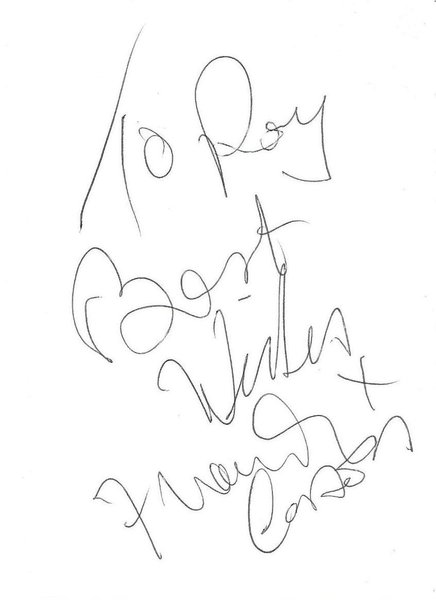 To Roy
Best
Wishes
x
Frank
Carson